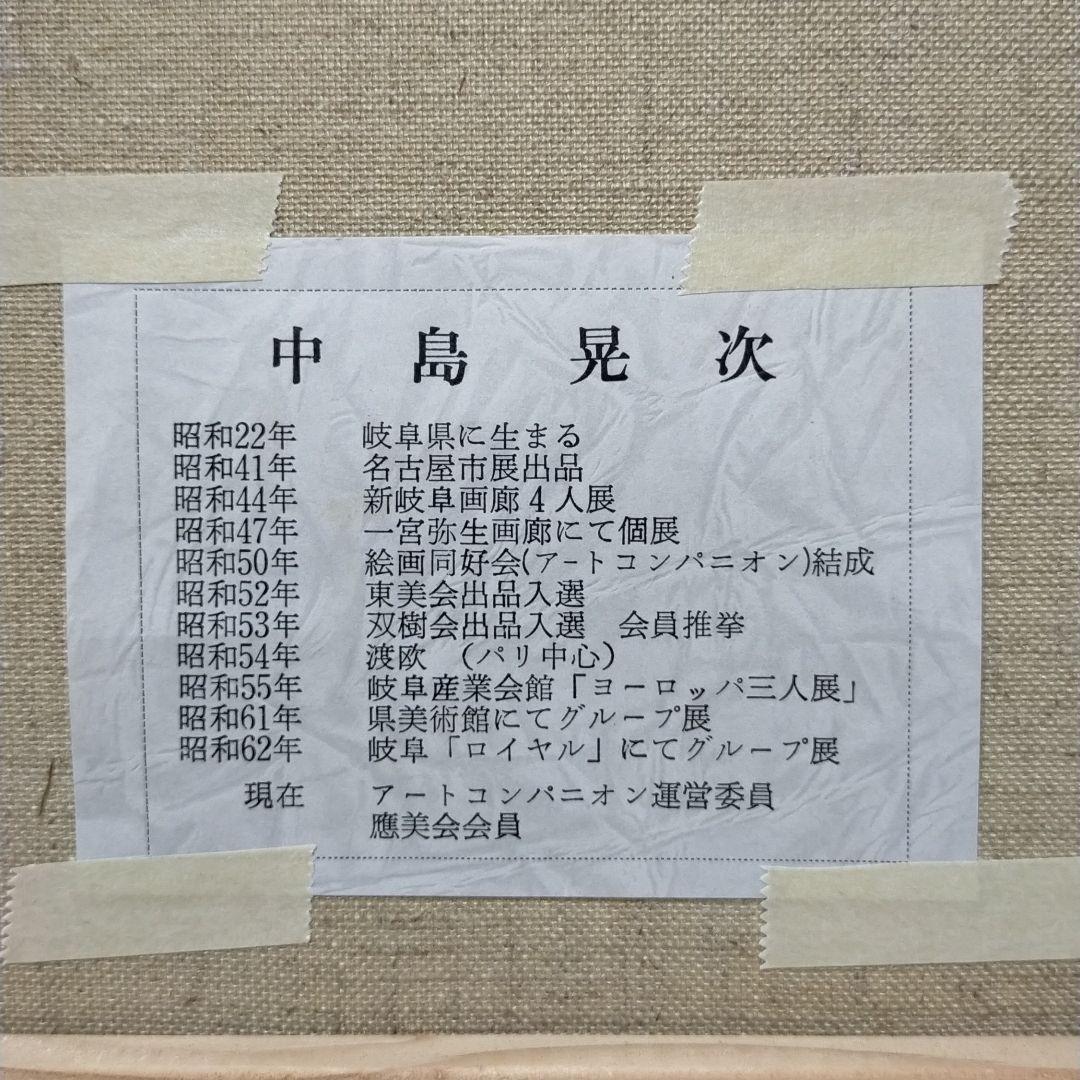 中島晃次
昭和22年 岐阜県に生まる
昭和41年 名古屋市展出品
昭和44年 新岐阜画廊4人展
昭和47年 一宮弥生画廊にて個展
昭和50年 絵画同好会(アートコンパニオン)結成
昭和52年 東美会出品入選
昭和53年 双樹会出品入選 会員推挙
昭和54年 渡欧 (パリ中心)
昭和55年 岐阜産業会館「ヨーロッパ三人展」
昭和61年 県美術館にてグループ展
昭和62年 岐阜「ロイヤル」にてグループ展
現在 アートコンパニオン運営委員
應美会会員